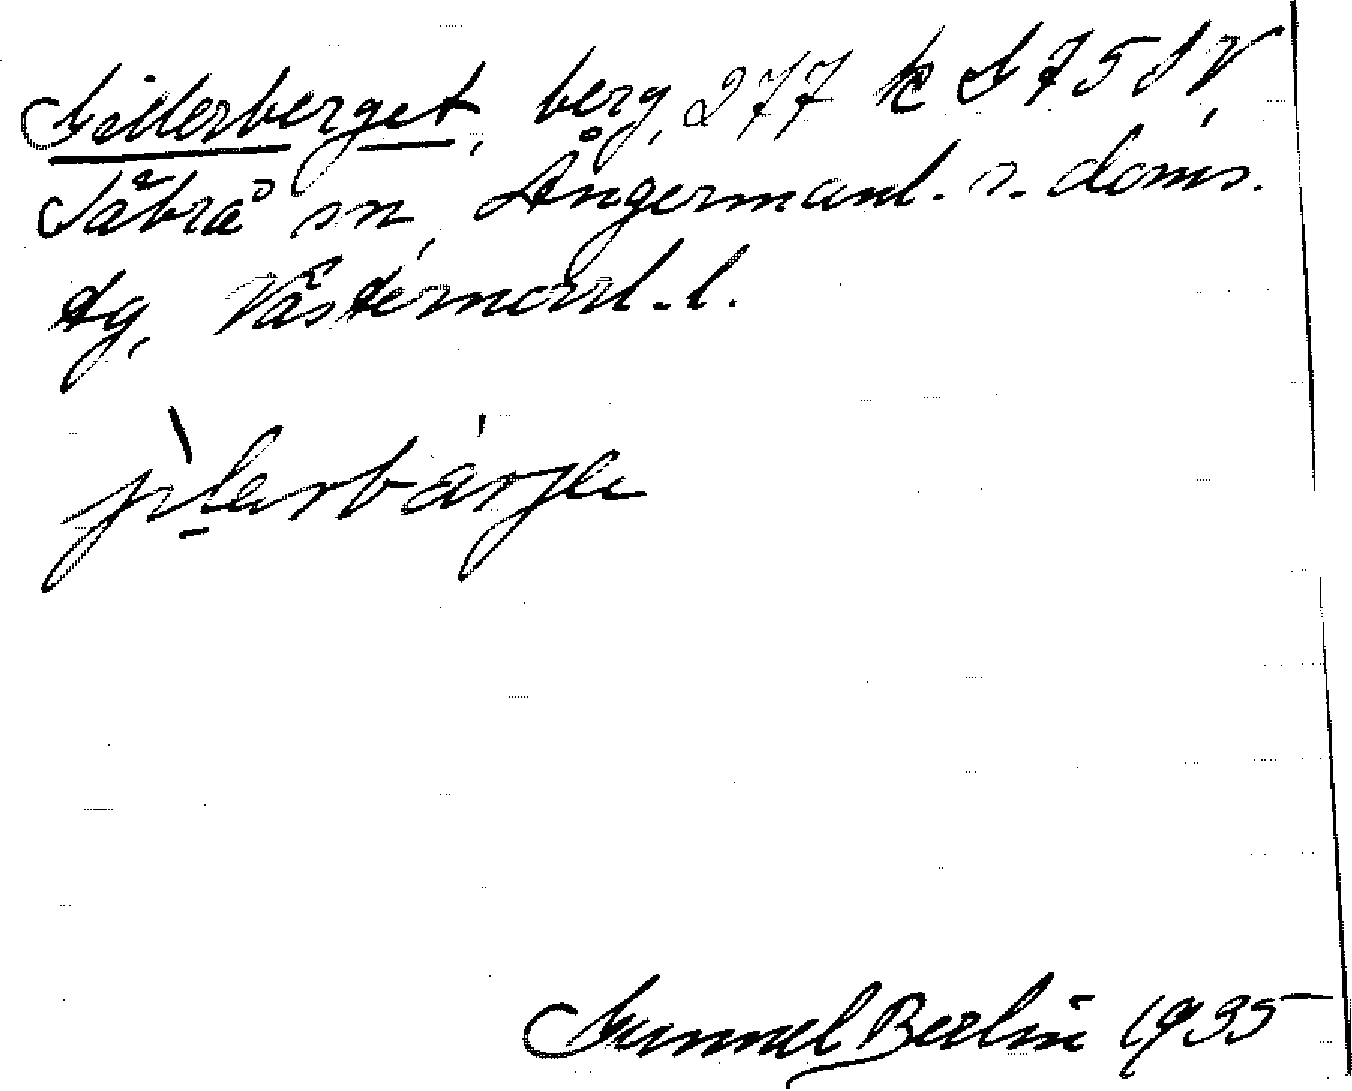 Gillerberget, berg, 277 k S 75 SV,
Säbrå sn, Ångermanl. s. doms.
tg, Västernorrl. l.
jìlarbárje
Gunnel Berlin 1935